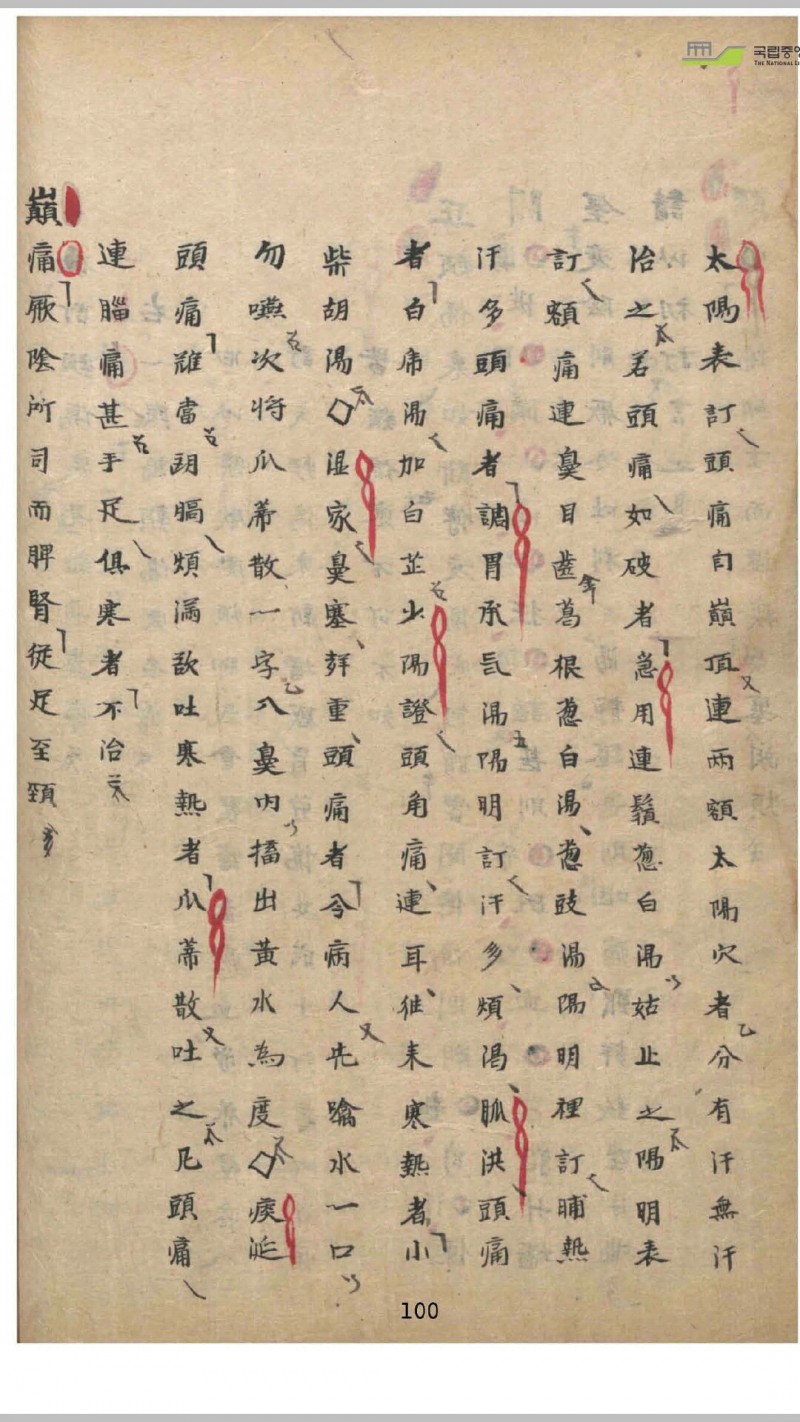 太陽表訂頭痛自巓頂連兩額太陽穴者分有汗無汗
治之若頭痛如破者急用連鬚葱白湯姑止之陽明表
訂額痛連鼻目齒葛根葱白湯葱豉湯陽明裡訂晡熱
汗多頭痛者調胃承氣湯陽明訂汗多煩渴脉洪頭痛
者白帍湯加白芷少陽證頭角痛連耳徃来寒熱者小
柴胡湯◇湿家鼻塞聲重頭痛者令病人先噙水一口
勿嚥次将瓜蒂散一字入鼻內搐出黃水為度◇痰涎
頭痛雖當胸膈煩滿欲吐寒熱者瓜蒂散吐之凡頭痛
連腦痛甚手足俱寒者不治
巓痛厥陰所司而脾腎從足至頸
국립중앙
THE NATIONAL LI
100